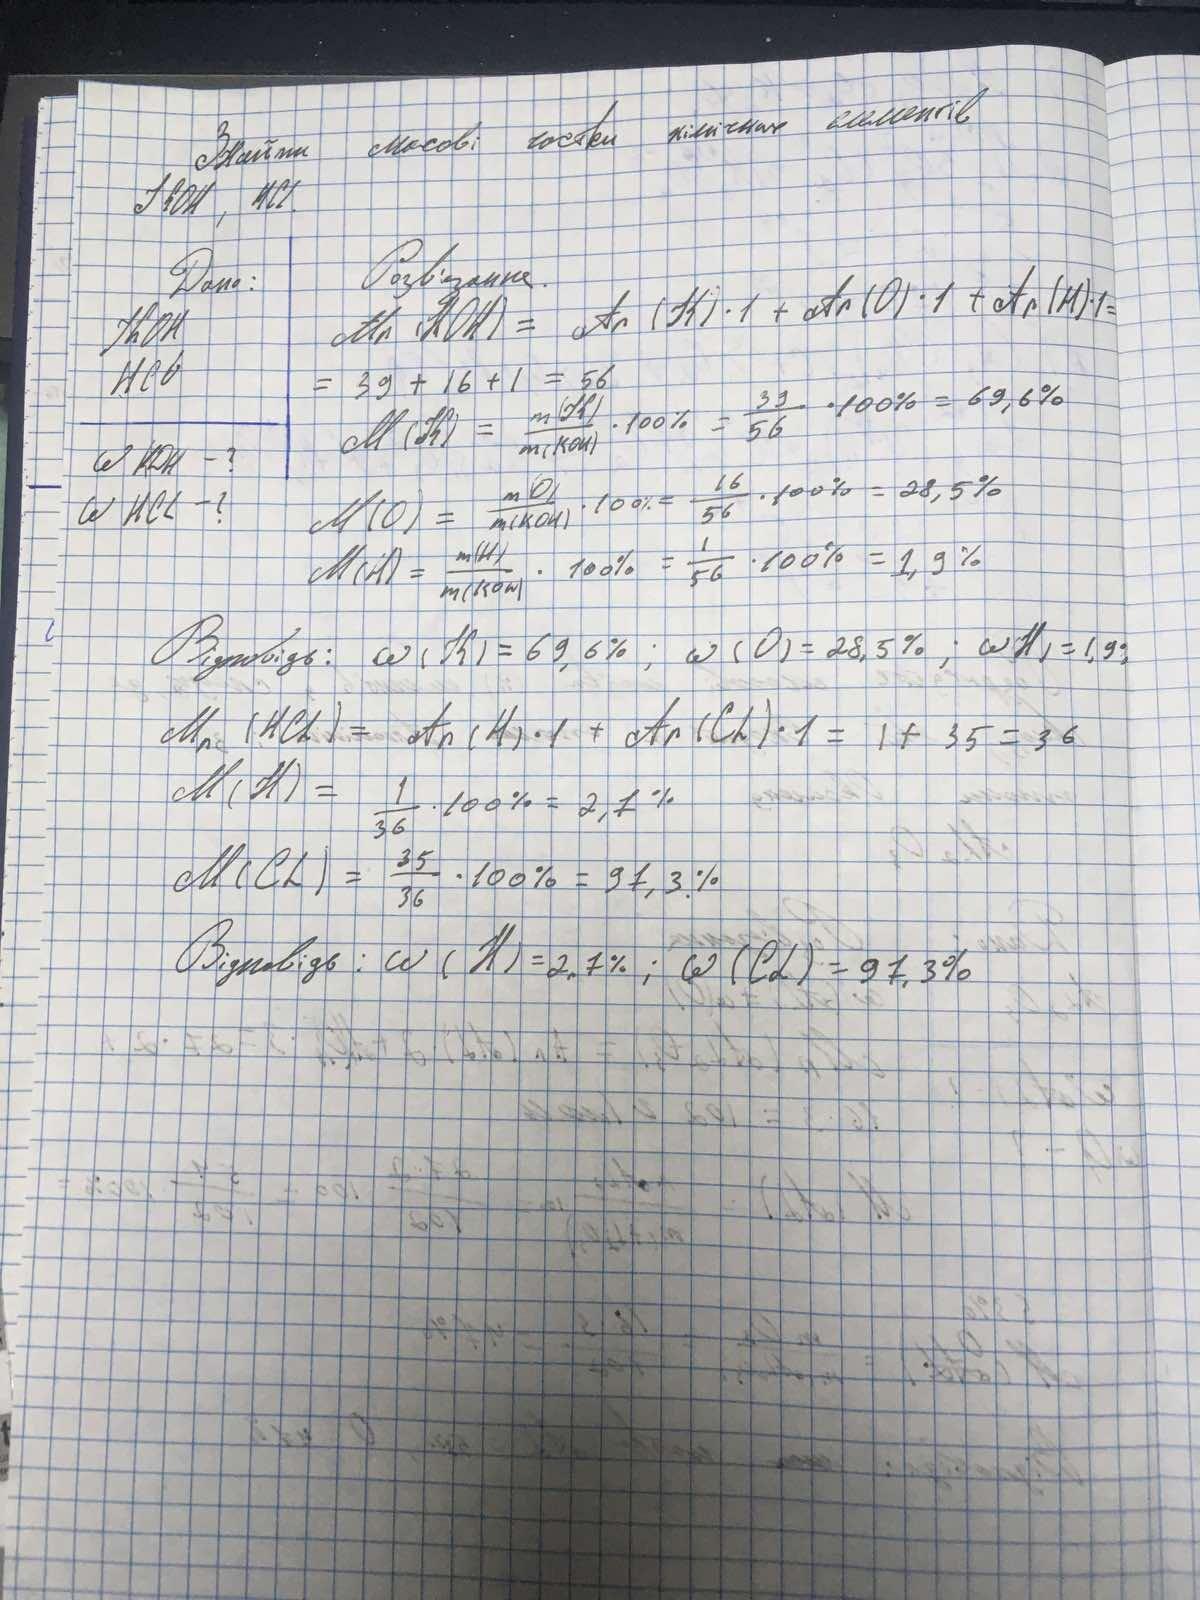 Знайти масові частки хімічних елементів
KOH, HCl.
Дано:
Розв'язання.
KOH
HCl
ω KOH - ?
ω HCL - ?
Mr (KOH) = Ar (K)·1 + Ar(O)·1 + Ar(H)·1=
= 39 + 16 + 1 = 56
M(K) = m(K)/m(KOH) · 100% = 39/56 · 100% = 69,6%
M(O) = m(O)/m(KOH) · 100% = 16/56 · 100% = 28,5%
M(H) = m(H)/m(KOH) · 100% = 1/56 · 100% = 1,9%
Відповідь: ω(K) = 69,6%; ω(O) = 28,5%; ω(H) = 1,9%
Mr (HCL) = Ar(H)·1 + Ar(CL)·1 = 1 + 35 = 36
M(H) = 1/36 · 100% = 2,7%
M(CL) = 35/36 · 100% = 97,3%
Відповідь: ω(H) = 2,7%; ω(CL) = 97,3%